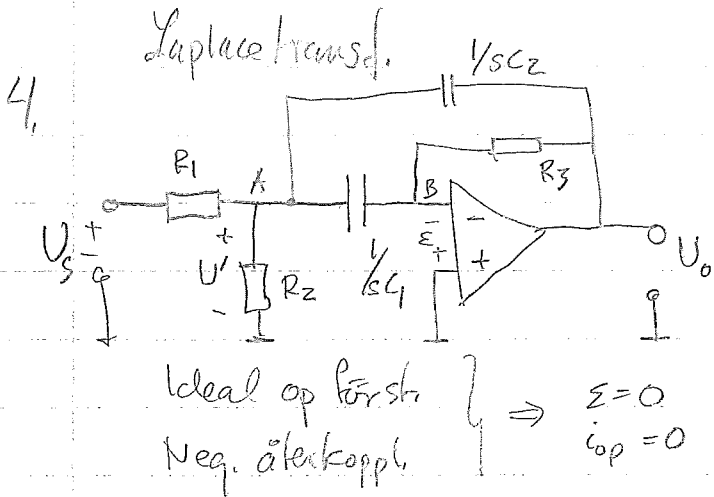 Laplacetransf.
4.
1/sC₂
R₃
R₁
A
B
U_s + -
+ U' -
R₂
1/sC₁
- ε +
-
+
U₀
Ideal op först.
Neg. återkoppl.
⇒ ε=0
i_op =0